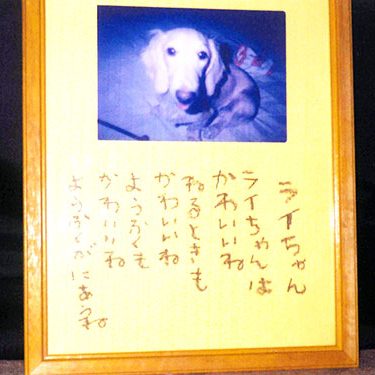 ライちゃん
ライちゃんは
かわいいね
ねるときも
かわいいね
ようふくも
かわいいね
ようふくがにあうね